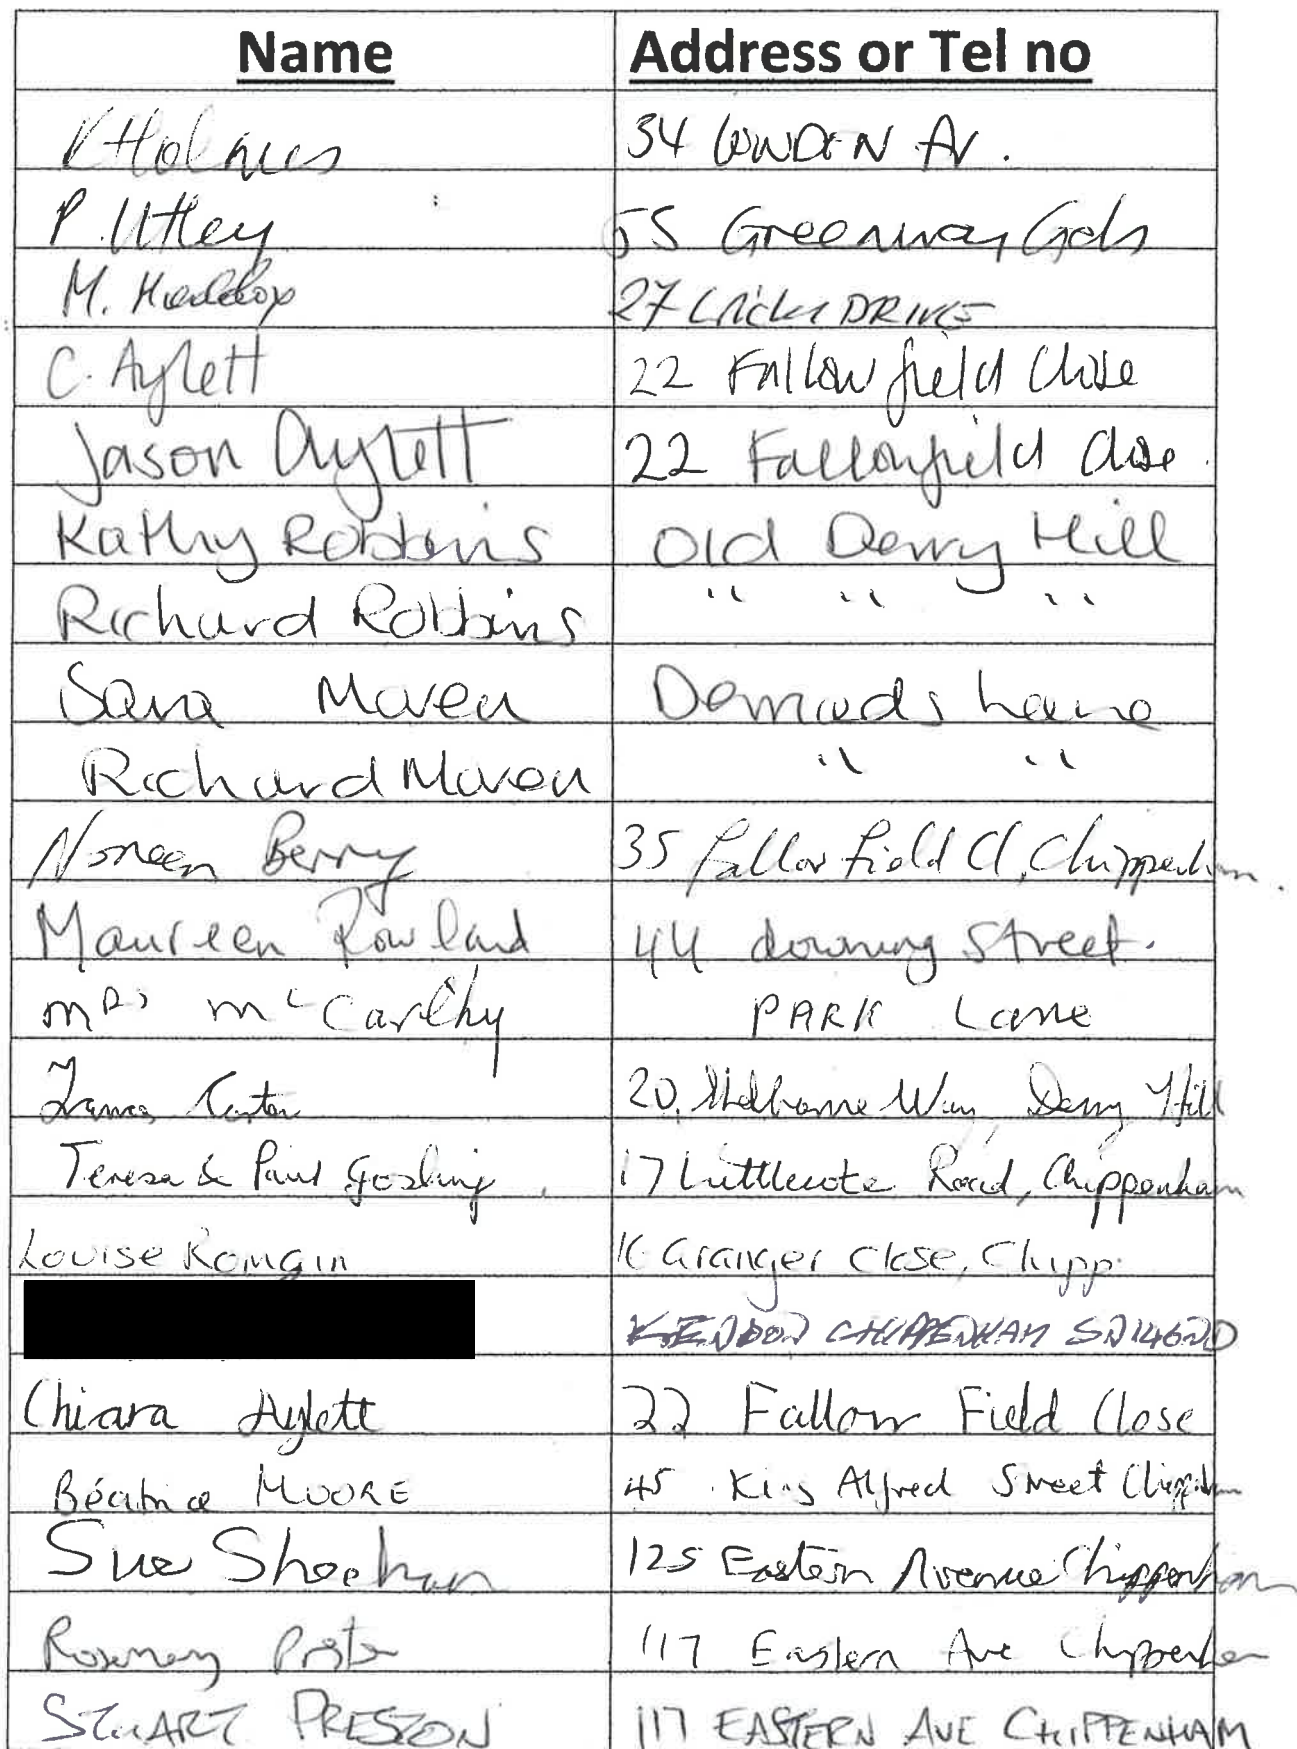 Name Address or Tel no
V Holmes 34 LOWDEN AV.
P. Utley 55 Greenway Gdns
M. Haddox 27 DRIVE
C. Aylett 22 Fallowfield Close
Jason Aylett 22 Fallowfield Close.
Kathy Robbins Old Derry Hill
Richard Robbins " " "
Sara Maven Lane
Richard Maven " "
Noreen Berry 35 Fallow Field Cl, Chippenham.
Maureen Rowland 44 downing Street.
Mrs McCarthy PARK Lane
20, Shelburne Way, Derry Hill
Teresa & Paul Gosling, 17 Littlecote Road, Chippenham
Louise 16 Granger Close, Chipp.
CHIPPENHAM SN14 6ND
Chiara Aylett 22 Fallow Field Close
Béatrice MOORE 45 King Alfred Street Chippenham
Sue Sheehan 125 Eastern Avenue Chippenham
Rosemary 117 Eastern Ave Chippenham
STUART PRESTON 117 EASTERN AVE CHIPPENHAM